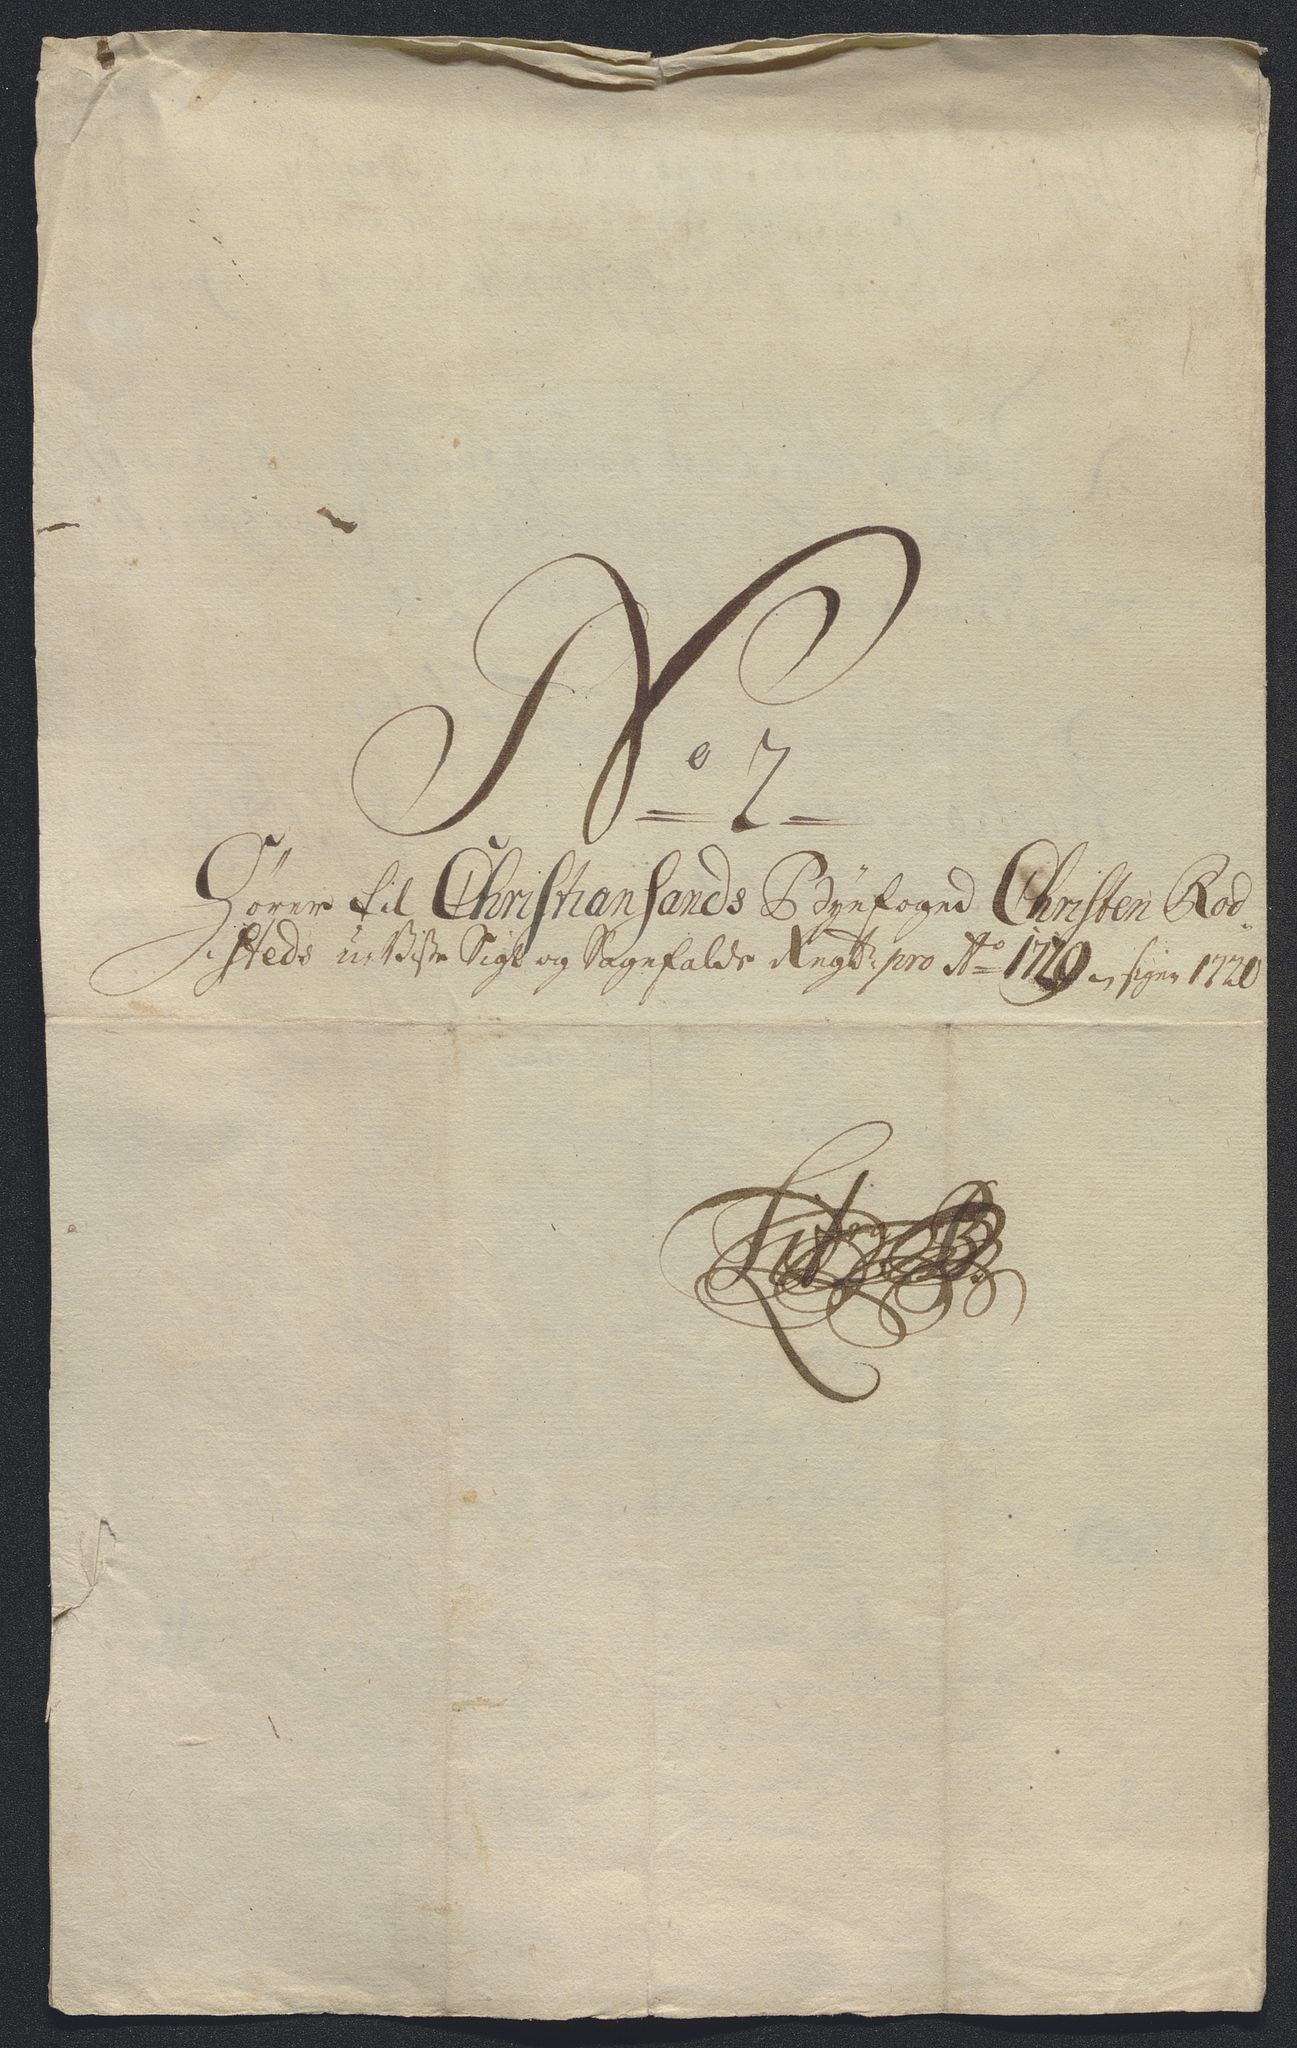 No 7
Hører til Christiansands Byefoged Christen Rod-
steds uvisse Sigt og Sagefalds Regsk: pro Ao 1729 siger 1720
Lit B.